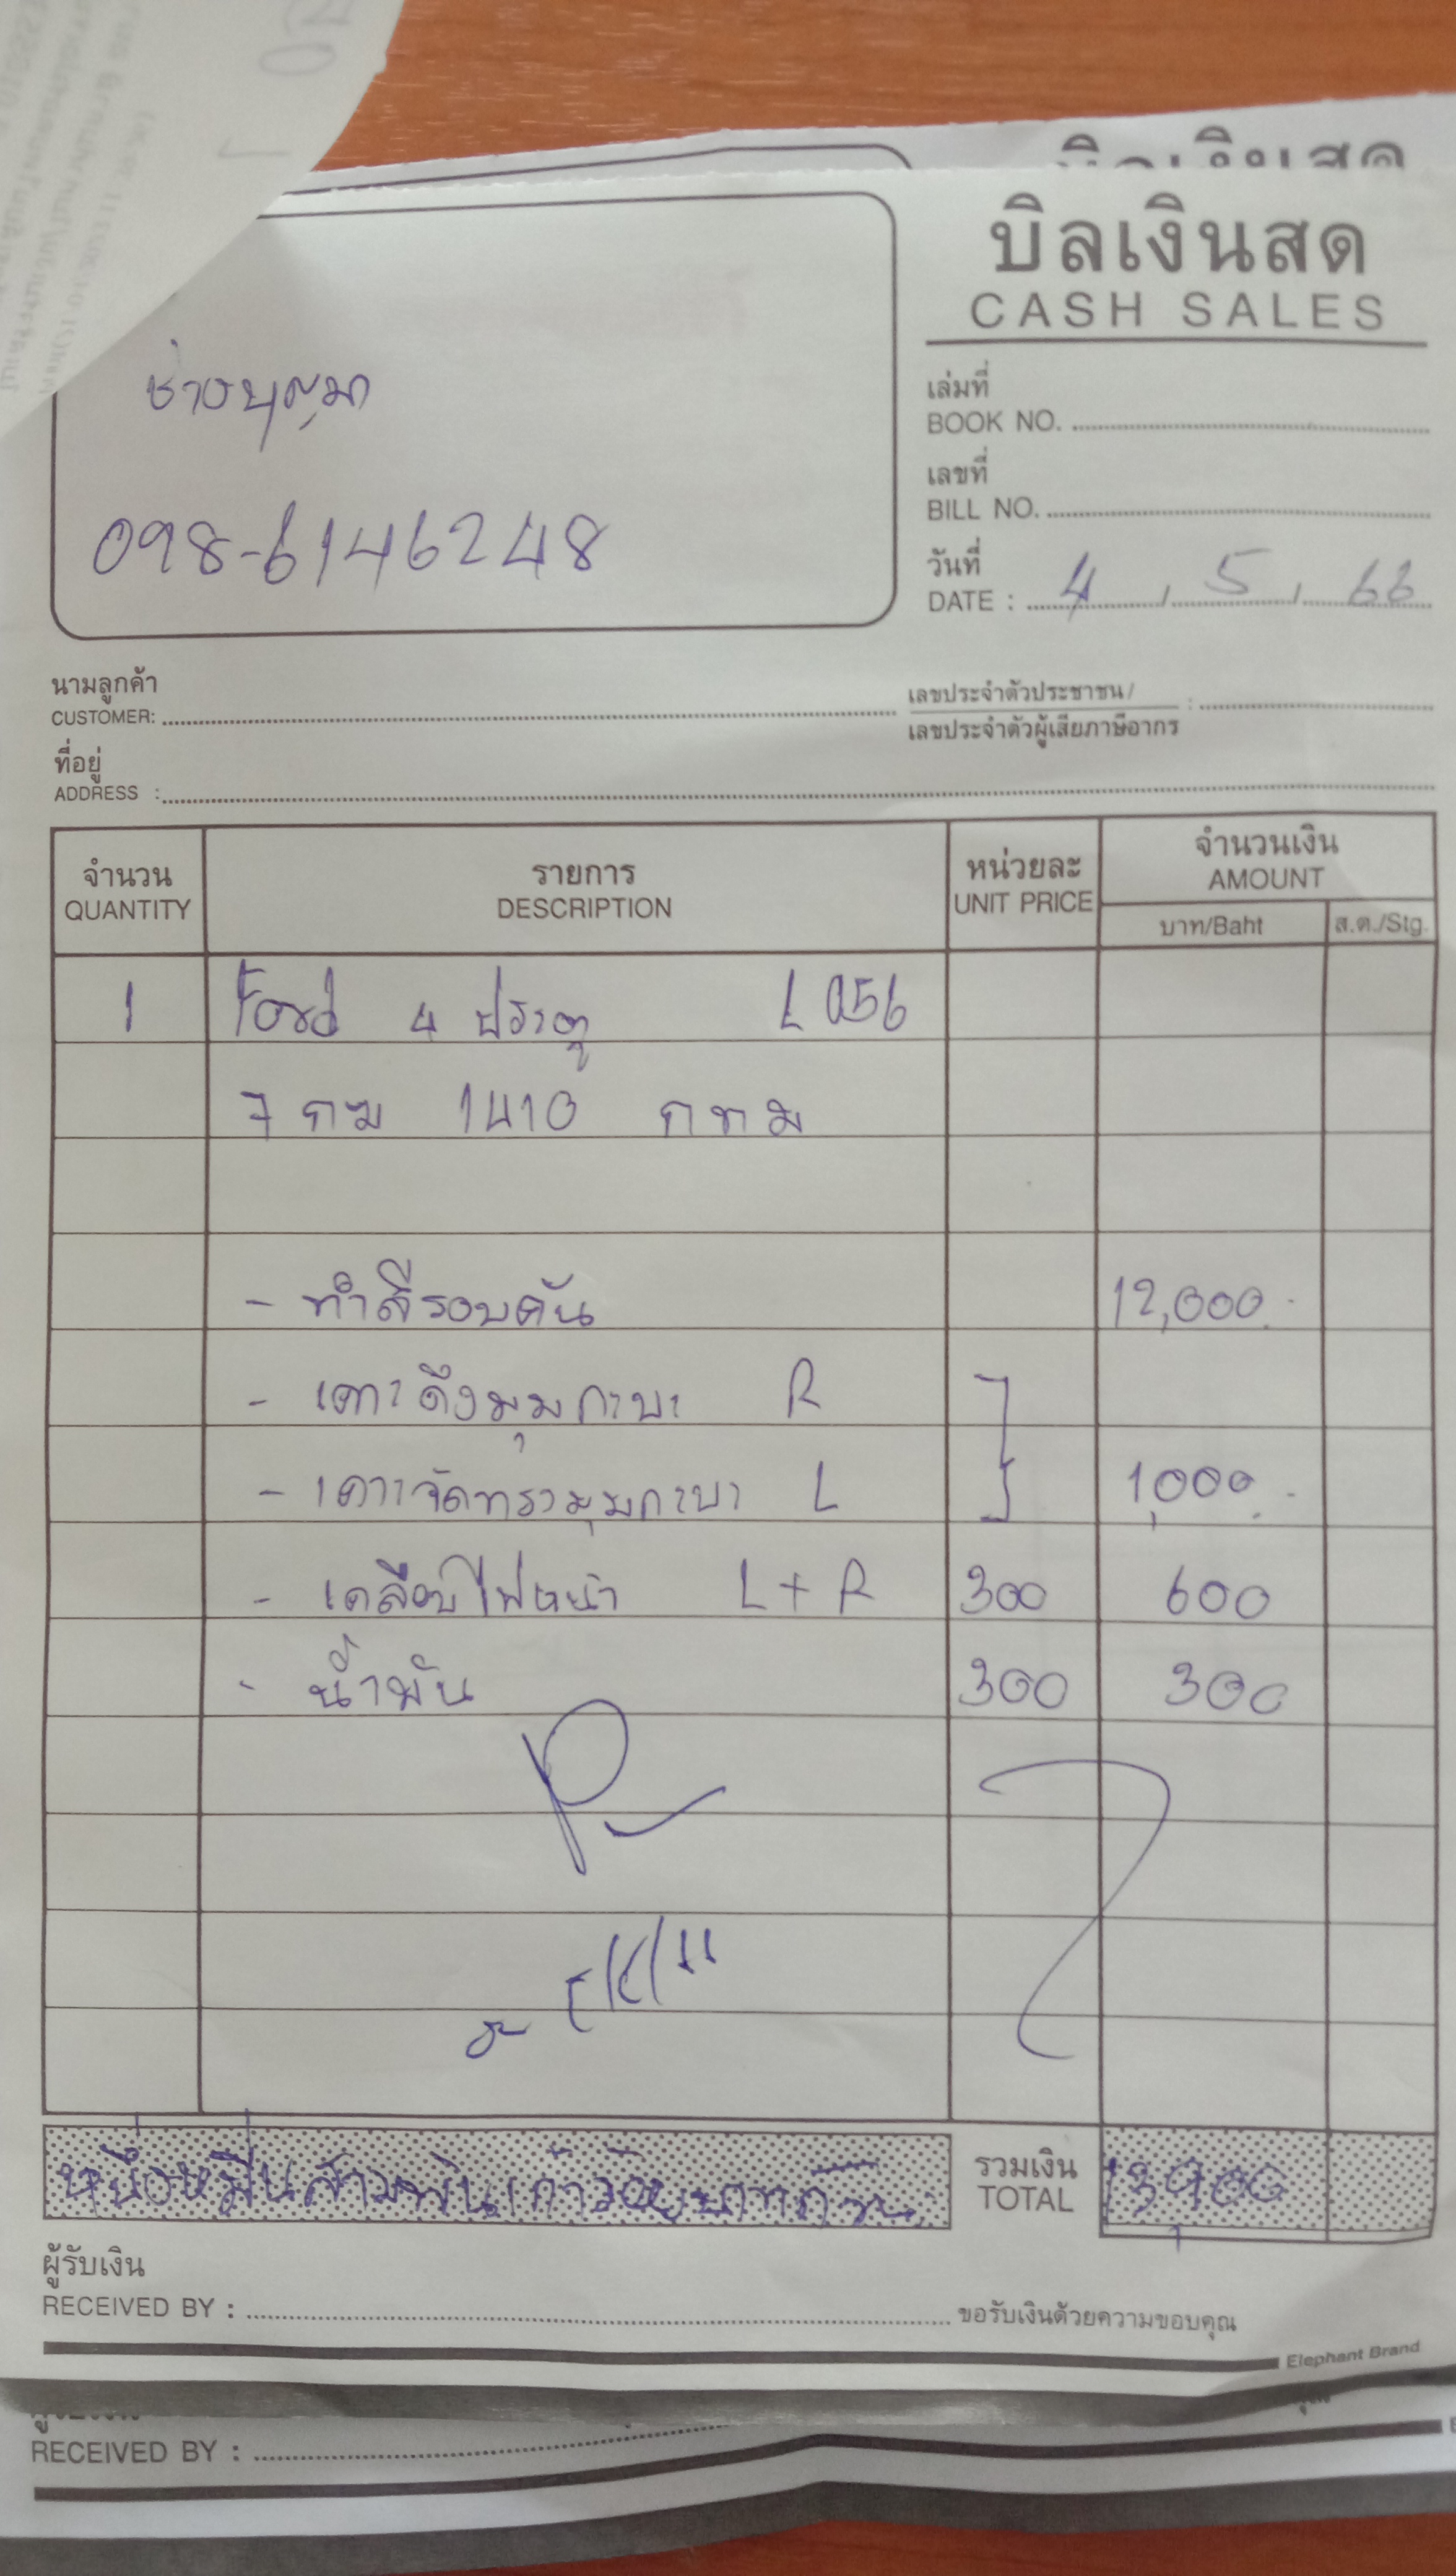 บิลเงินสด
CASH SALES
ช่างบุญมา
098-6146248
เล่มที่
BOOK NO.
เลขที่
BILL NO.
วันที่
DATE : 4 , 5 , 66
นามลูกค้า
CUSTOMER:
เลขประจำตัวประชาชน /
เลขประจำตัวผู้เสียภาษีอากร :
ที่อยู่
ADDRESS :
จำนวน รายการ หน่วยละ จำนวนเงิน
QUANTITY DESCRIPTION UNIT PRICE AMOUNT
บาท/Baht ส.ต./Stg.
1 Ford 4 ประตู L 056
7 กฆ 1410 กทม
- ทำสีรอบคัน 12,000.-
- เคาะดึงมุมกะบะ R
- เคาะจัดทรงมุมกะบะ L 1,000.-
- เคลือบไฟหน้า L + R 300 600
- น้ำมัน 300 300
หนึ่งหมื่นสามพันเก้าร้อยบาทถ้วน รวมเงิน 13,900
TOTAL
ผู้รับเงิน
RECEIVED BY : ขอรับเงินด้วยความขอบคุณ
Elephant Brand
RECEIVED BY :